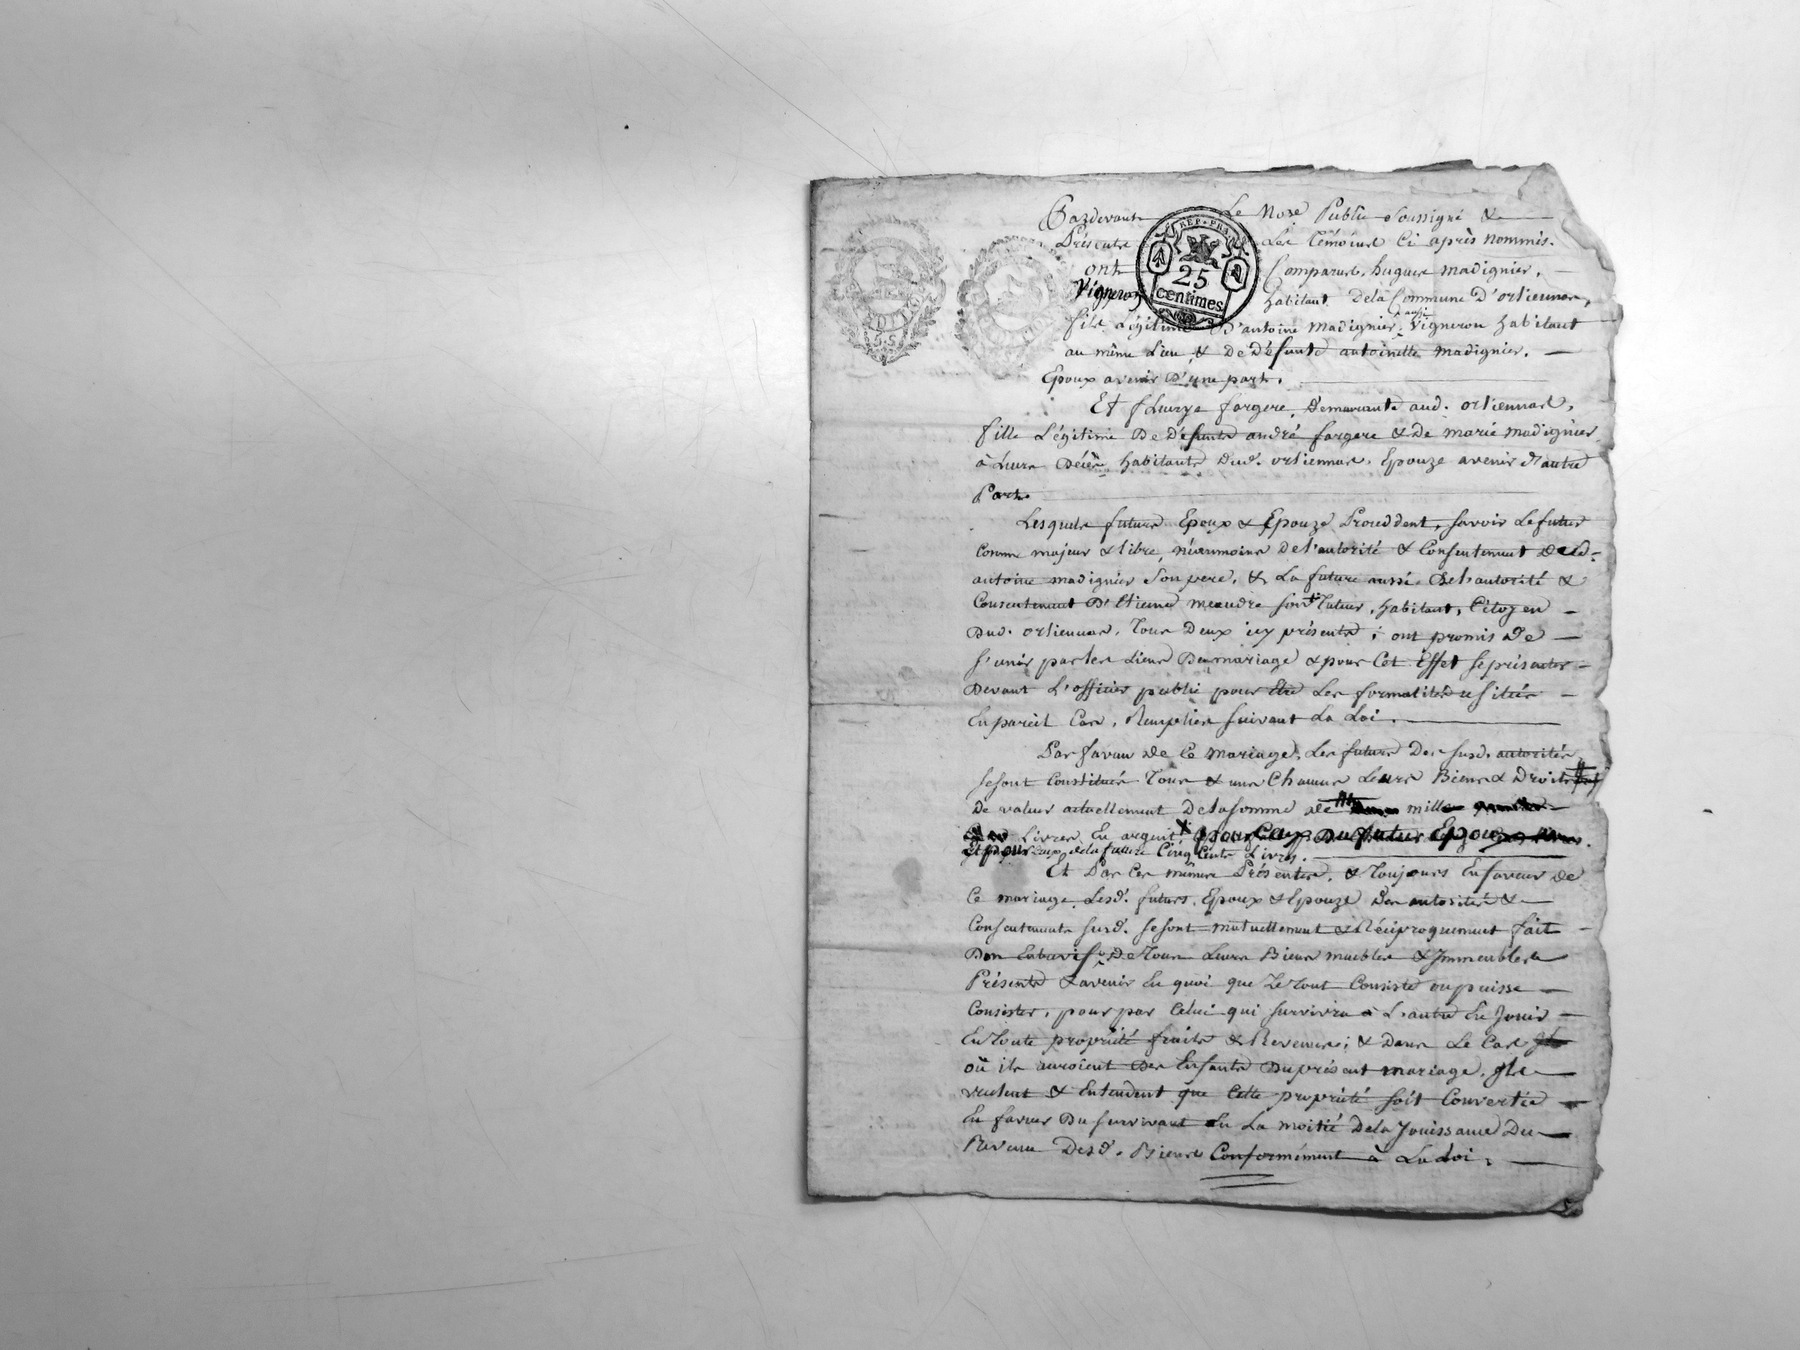 Pardevant Le No.re Public soussigné &
Présents Les témoins Ci après nommés.
REP. FRA.
25
centimes
ont Comparus, hugues madignier,
Vigneron habitant de la Commune D'orliennas,
fils légitime D'antoine madignier, aussi Vigneron habitant
au même Lieu, & De Défunte antoinette madignier.
Epoux avenir D'une part.
Et fleurye fargere, Demeurante aud. orliennas,
fille Légitime De Défunts andré fargere & De marie madignier
à Leurs Décès habitants Dud. orliennas, Epouze avenir D'autre
Part.
Lesquels futurs Epoux & Epouze Procèdent, savoir Le futur
comme majeur & libre, néanmoins de l'autorité & Consentement De Sd.
antoine madignier Son pere, & La future aussi De L'autorité &
Consentement D'Etienne meaudre son Tuteur, habitant, Citoyen
Dud. orliennas, Tous Deux icy présents; ont promis de
s'unir par les Liens Du mariage & pour Cet Effet se présenter
Devant L'officier public pour Etre Les formalités usitées
En pareil Cas, Remplies suivant La Loi.
Par faveur de Ce mariage, Les futurs Des susd. autorités
se sont Constitués Tous & uns Chacuns Leurs Biens & Droits
De valeur actuellement De la somme de mille
Livres En argent pour Ceux Du futur Epoux
Et pour Ceux de la future Cinq Cents Livres.
Et Par Ces mêmes Présentes, & Toujours En faveur de
Ce mariage, Lesd. futurs, Epoux & Epouze Des autorités &
Consentements susd. se sont mutuellement & Réciproquement fait
Don De Tous Leurs Biens meubles & Immeubles
Présents & avenir En quoi que Le Tout Consiste ou puisse
Consister, pour par Celui qui survivra à L'autre En Jouir
En Toute propriété fruits & Revenus; & Dans Le Cas
où ils auroient Des Enfants Du présent mariage, Ils
veulent & Entendent que Cette propriété soit Convertie
En faveur Du survivant En La moitié De la Jouissance Du
Revenu Desd. Biens Conformément à La Loi.